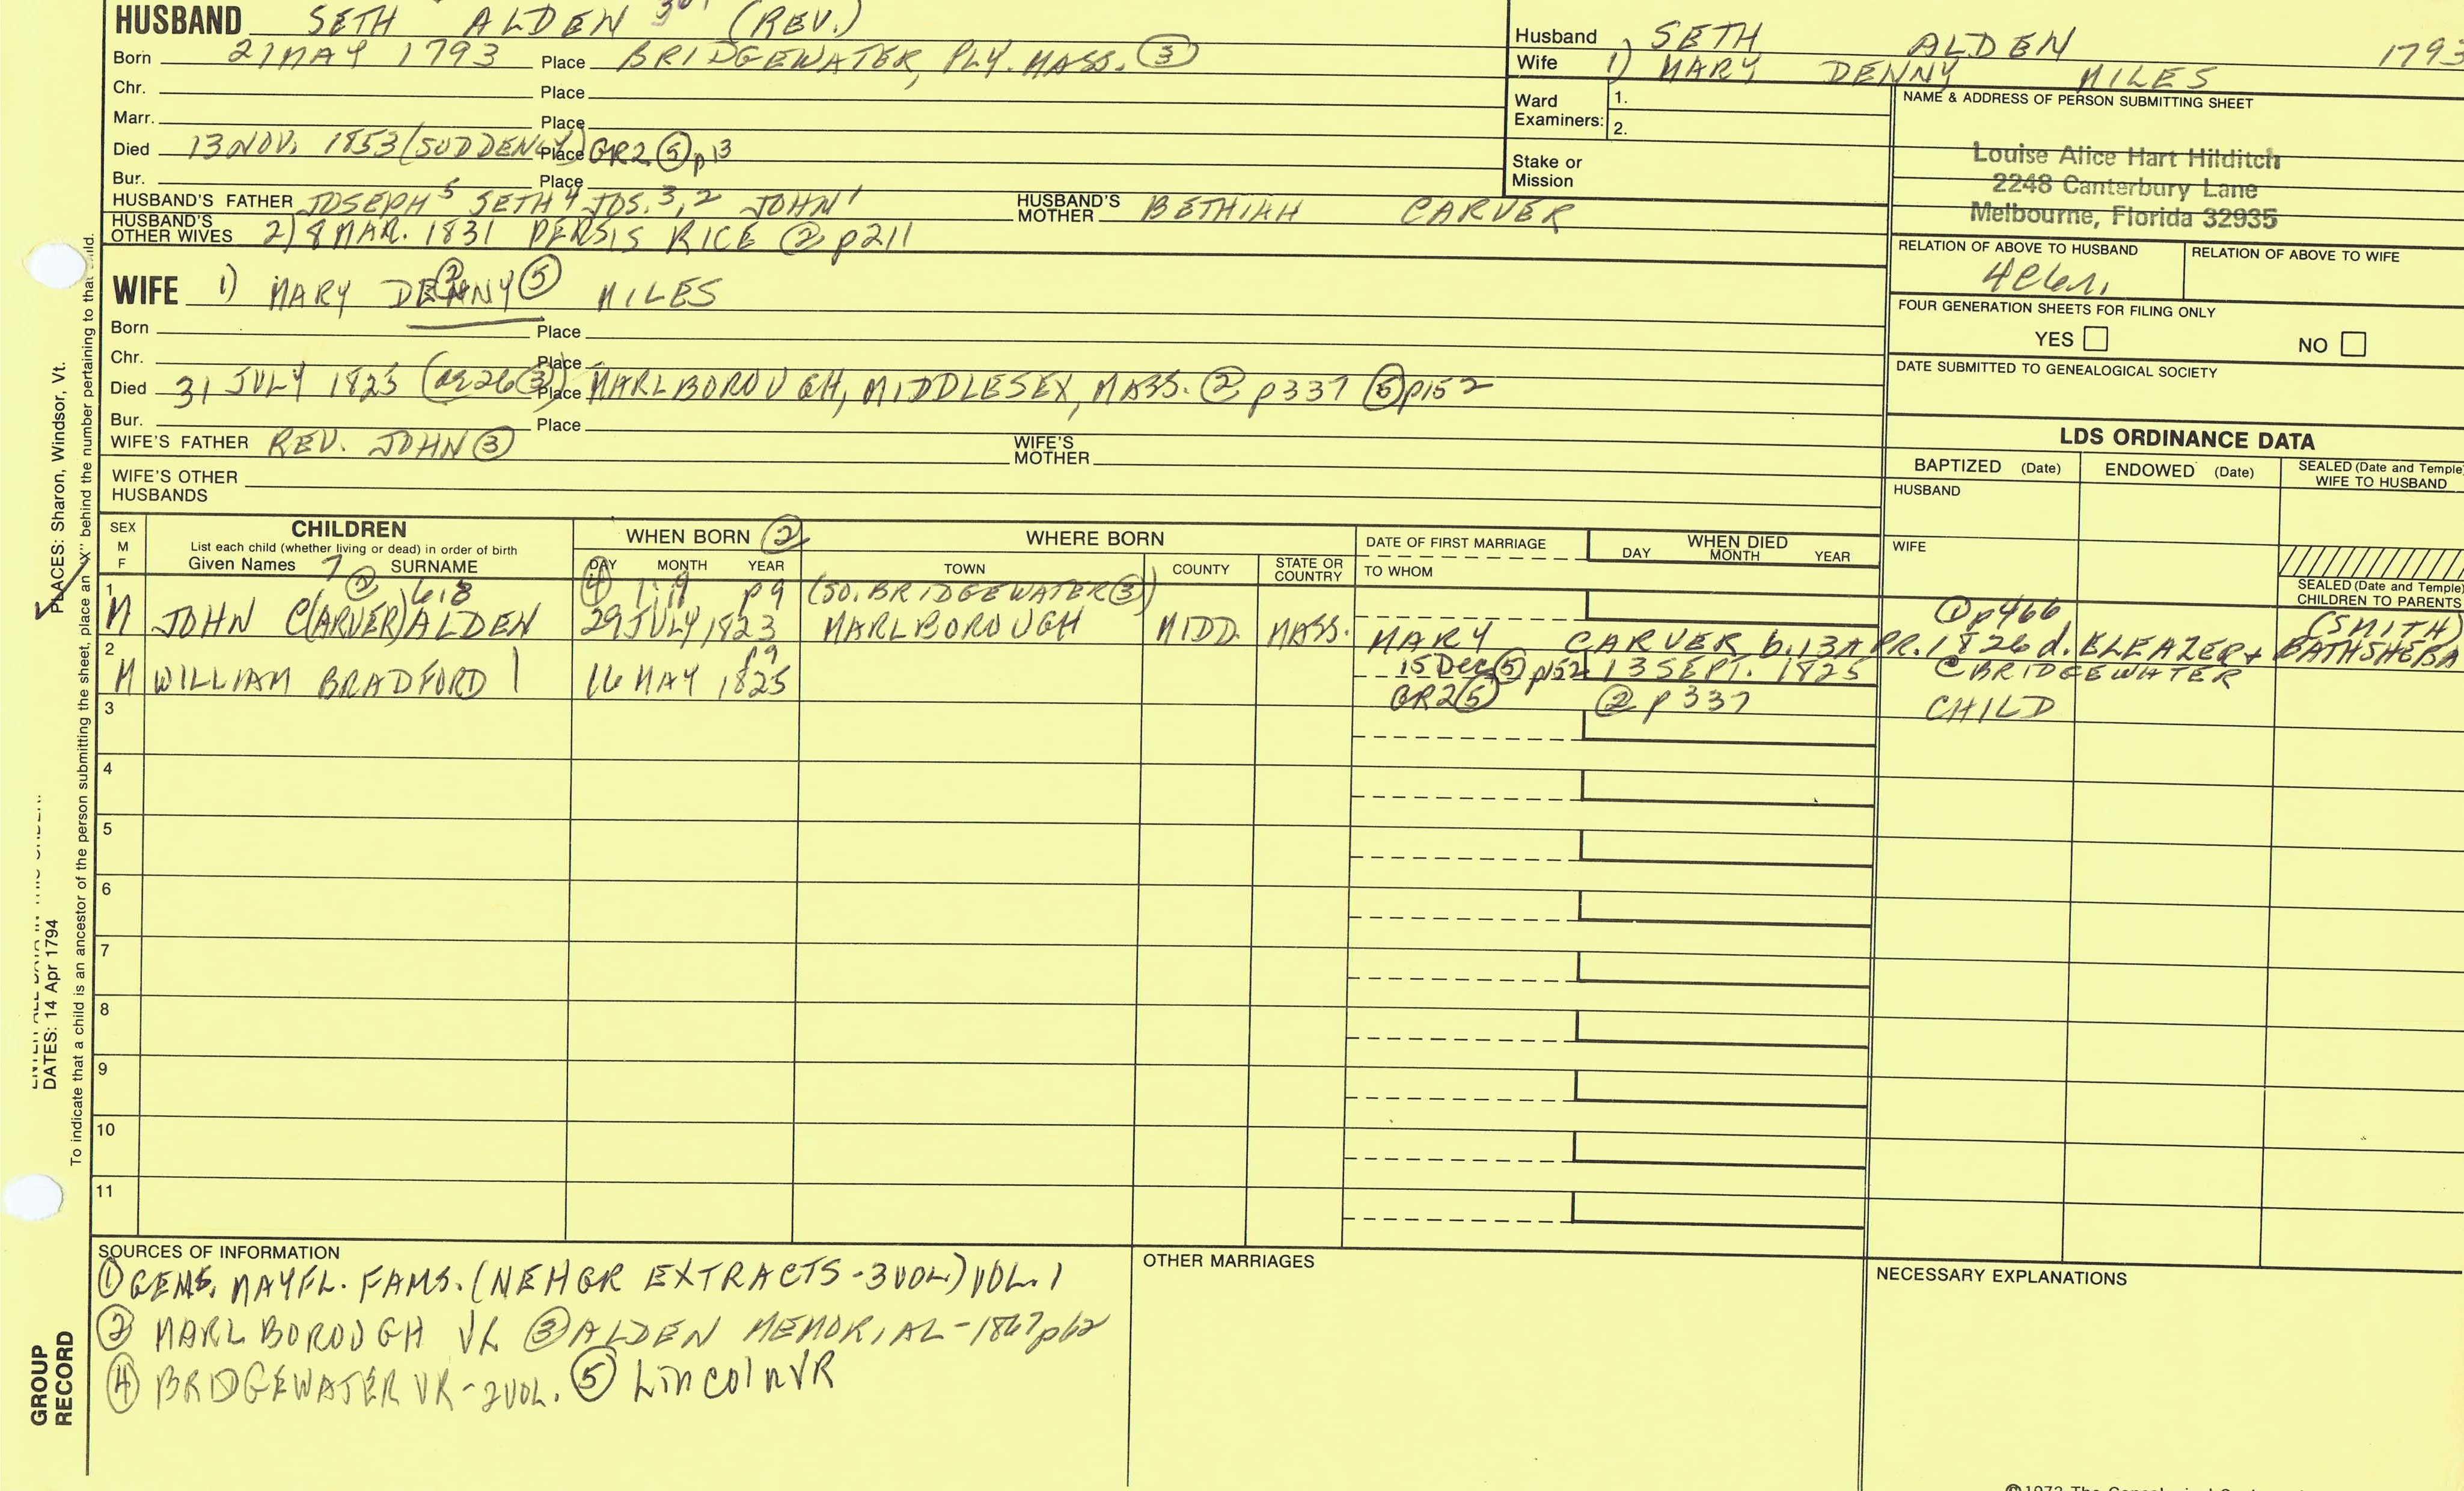 HUSBAND SETH ALDEN (REV.)
Born 21 MAY 1793 Place BRIDGEWATER, PLY. MASS. ③
Chr. Place
Marr. Place
Died 13 NOV. 1853 (SUDDENLY) Place GR2 ⑤ p13
Bur. Place
HUSBAND'S FATHER JOSEPH 5 SETH 4 JOS. 3,2 JOHN 1 HUSBAND'S MOTHER BETHIAH CARVER
HUSBAND'S OTHER WIVES 2) 8 MAR. 1831 PERSIS RICE ② p211
Husband SETH ALDEN 1793
Wife 1) MARY DENNY MILES
Ward Examiners: 1.
2.
Stake or Mission
NAME & ADDRESS OF PERSON SUBMITTING SHEET
Louise Alice Hart Hilditch
2248 Canterbury Lane
Melbourne, Florida 32935
RELATION OF ABOVE TO HUSBAND RELATION OF ABOVE TO WIFE
FOUR GENERATION SHEETS FOR FILING ONLY
YES NO
DATE SUBMITTED TO GENEALOGICAL SOCIETY
WIFE 1) MARY DENNY ② ⑤ MILES
Born Place
Chr. Place
Died 31 JULY 1825 (ae 26 ③) Place MARLBOROUGH, MIDDLESEX, MASS. ② p337 ⑤ p152
Bur. Place
WIFE'S FATHER REV. JOHN ③ WIFE'S MOTHER
WIFE'S OTHER HUSBANDS
LDS ORDINANCE DATA
BAPTIZED (Date) ENDOWED (Date) SEALED (Date and Temple) WIFE TO HUSBAND
HUSBAND
WIFE
SEALED (Date and Temple) CHILDREN TO PARENTS
SEX M F CHILDREN List each child (whether living or dead) in order of birth Given Names SURNAME
WHEN BORN ② DAY MONTH YEAR
WHERE BORN TOWN COUNTY STATE OR COUNTRY
DATE OF FIRST MARRIAGE TO WHOM
WHEN DIED DAY MONTH YEAR
7 ② 618 ④ 1:19 p9 (SO. BRIDGEWATER ③) ① p466
1 M JOHN C(ARVER) ALDEN 29 JULY 1823 MARLBOROUGH MIDD. MASS. MARY CARVER b. 13 APR. 1826 d. ELEAZER + BATHSHEBA (SMITH)
@ BRIDGEWATER
2 M WILLIAM BRADFORD p9 16 MAY 1825 15 Dec ⑤ p152 13 SEPT. 1825
GR2 ⑤ ② p337 CHILD
3
4
5
6
7
8
9
10
11
SOURCES OF INFORMATION
① GENS. MAYFL. FAMS. (NEHGR EXTRACTS - 3 VOL.) VOL. 1
② MARLBOROUGH VR ③ ALDEN MEMORIAL - 1867 p62
④ BRIDGEWATER VR - 2 VOL. ⑤ Lincoln VR
OTHER MARRIAGES
NECESSARY EXPLANATIONS
PLACES: Sharon, Windsor, Vt.
DATES: 14 Apr 1794
To indicate that a child is an ancestor of the person submitting the sheet, place an "X" behind the number pertaining to that child.
GROUP RECORD